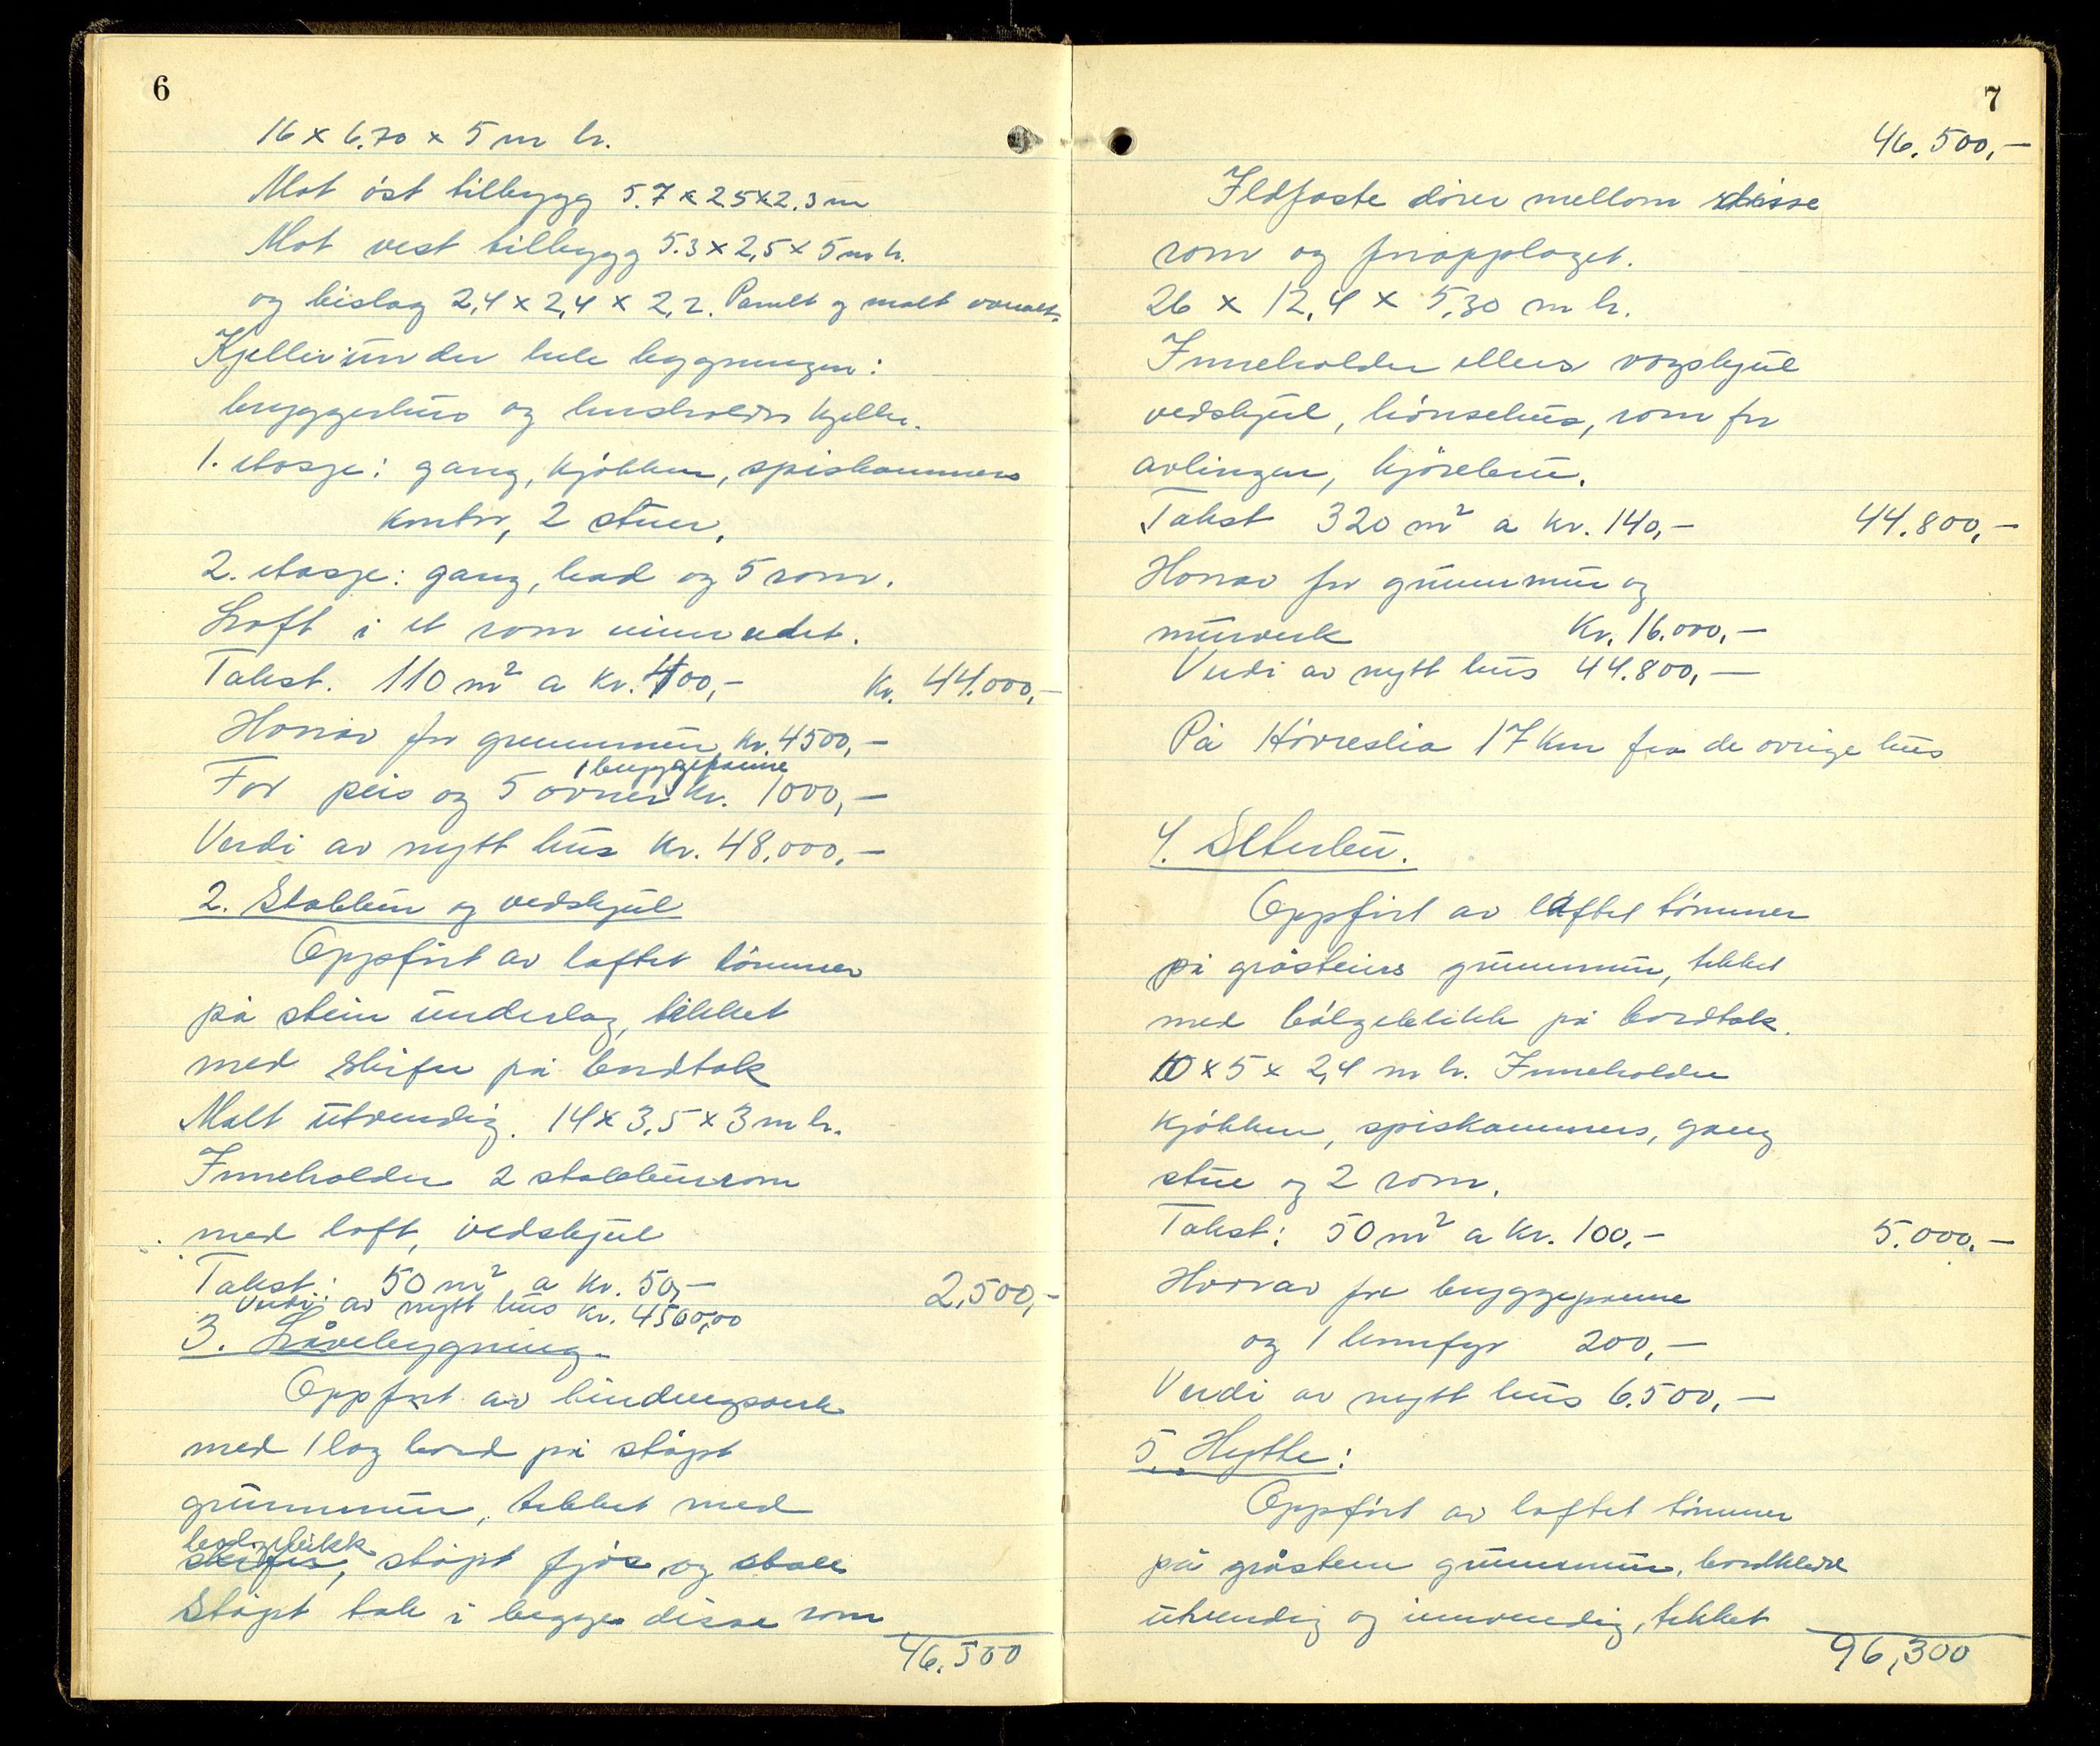 6
16 x 6.70 x 5 m h.
Mot öst tilbygg 5.7 x 2.5 x 2.3 m
Mot vest tilbygg 5.3 x 2,5 x 5 m h.
og bislag 2,4 x 2,4 x 2,2. Panelt og malt
Kjeller under hele bygningen:
bryggerhus og husholdn kjeller.
1. etasje: gang, kjökken, spiskammers
kontor, 2 stuer.
2. etasje: gang, bad og 5 rom.
Loft i et rom innredet.
Takst. 110 m² a kr. 400,- Kr. 44.000,-
Herav for grunnmur kr. 4500,-
1 bryggepanne
For peis og 5 ovner kr. 1000,-
Verdi av nytt hus kr. 48.000,-
2. Stabbur og vedskjul
Oppført av laftet tömmer
på stein underlag, tekket
med skifer på bordtak
Malt utvendig. 14 x 3,5 x 3 m h.
Inneholder 2 stabbursrom
med loft, vedskjul
Takst: 50 m² a kr. 50,- 2,500,-
Verdi av nytt hus kr. 4500,00
3. Låvebygning.
Oppfört av bindingsverk
med 1 lag bord på stöpt
grunnmur, tekket med
bølgeblikk
skifer, stöpt fjös og stall
Stöpt tak i begge disse rom
46.500
7
46.500,-
Ildfaste dörer mellom disse
rom og foropplaget.
26 x 12,4 x 5,30 m h.
Inneholder ellers vognskjul
vedskjul, hönsehus, rom for
avlingen, kjörebru.
Takst 320 m² a kr. 140,- 44.800,-
Herav for grunnmur og
murverk Kr. 16.000,-
Verdi av nytt hus 44.800,-
På Hövreslia 17 km fra de övrige hus
4. Seterbu.
Oppfört av laftet tömmer
på gråsteins grunnmur, tekket
med bölgeblikk på bordtak.
10 x 5 x 2,4 m h. Inneholder
kjökken, spiskammers, gang
stue og 2 rom.
Takst: 50 m² a kr. 100,- 5.000,-
Herav for bryggepanne
og 1 komfyr 200,-
Verdi av nytt hus 6.500,-
5. Hytte:
Oppfört av laftet tömmer
på gråstein grunnmur, bordkledd
utvendig og innvendig, tekket
96,300